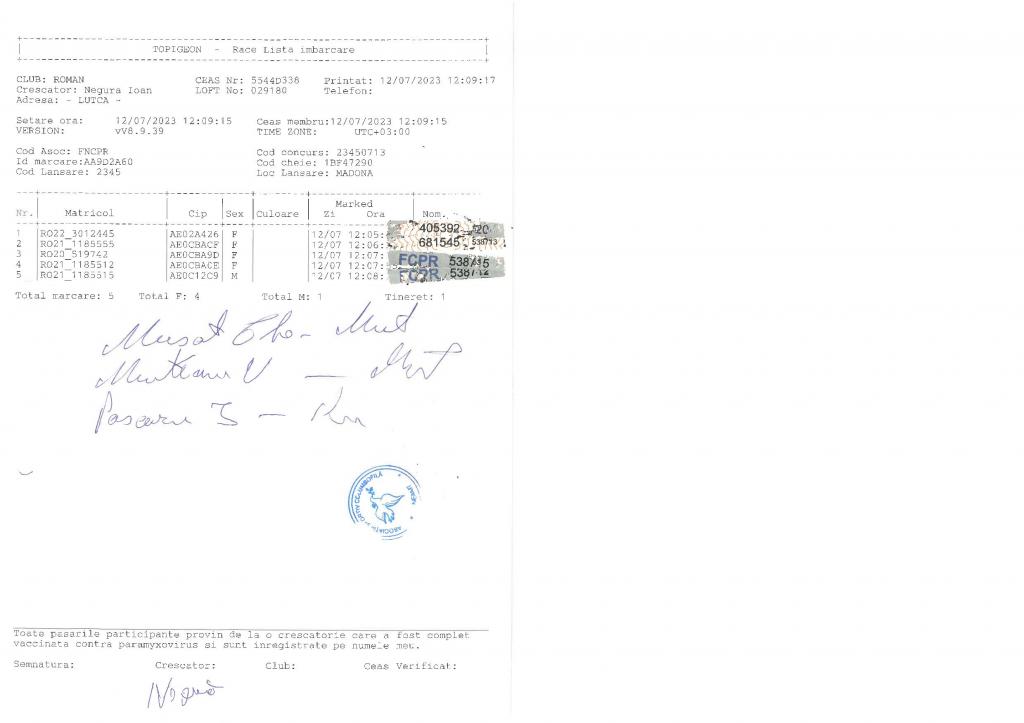 TOPIGEON - Race Lista imbarcare
CLUB: ROMAN CEAS Nr: 5544D338 Printat: 12/07/2023 12:09:17
Crescator: Negura Ioan LOFT No: 029180 Telefon:
Adresa: - LUTCA -
Setare ora: 12/07/2023 12:09:15 Ceas membru:12/07/2023 12:09:15
VERSION: vV8.9.39 TIME ZONE: UTC+03:00
Cod Asoc: FNCPR Cod concurs: 23450713
Id marcare:AA9D2A60 Cod cheie: 1BF47290
Cod Lansare: 2345 Loc Lansare: MADONA
Marked
Nr. Matricol Cip Sex Culoare Zi Ora Nom.
1 RO22_3012445 AE02A426 F 12/07 12:05: 405392
2 RO21_1185555 AE0CBACF F 12/07 12:06: 681545 538713
3 RO20_519742 AE0CBA9D F 12/07 12:07: FCPR 538715
4 RO21_1185512 AE0CBACE F 12/07 12:07: FCPR 538712
5 RO21_1185515 AE0C12C9 M 12/07 12:08:
Total marcare: 5 Total F: 4 Total M: 1 Tineret: 1
Musat Ghe-
Munteanu V —
Pascaru I —
Toate pasarile participante provin de la o crescatorie care a fost complet
vaccinata contra paramyxovirus si sunt inregistrate pe numele meu.
Semnatura: Crescator: Club: Ceas Verificat: